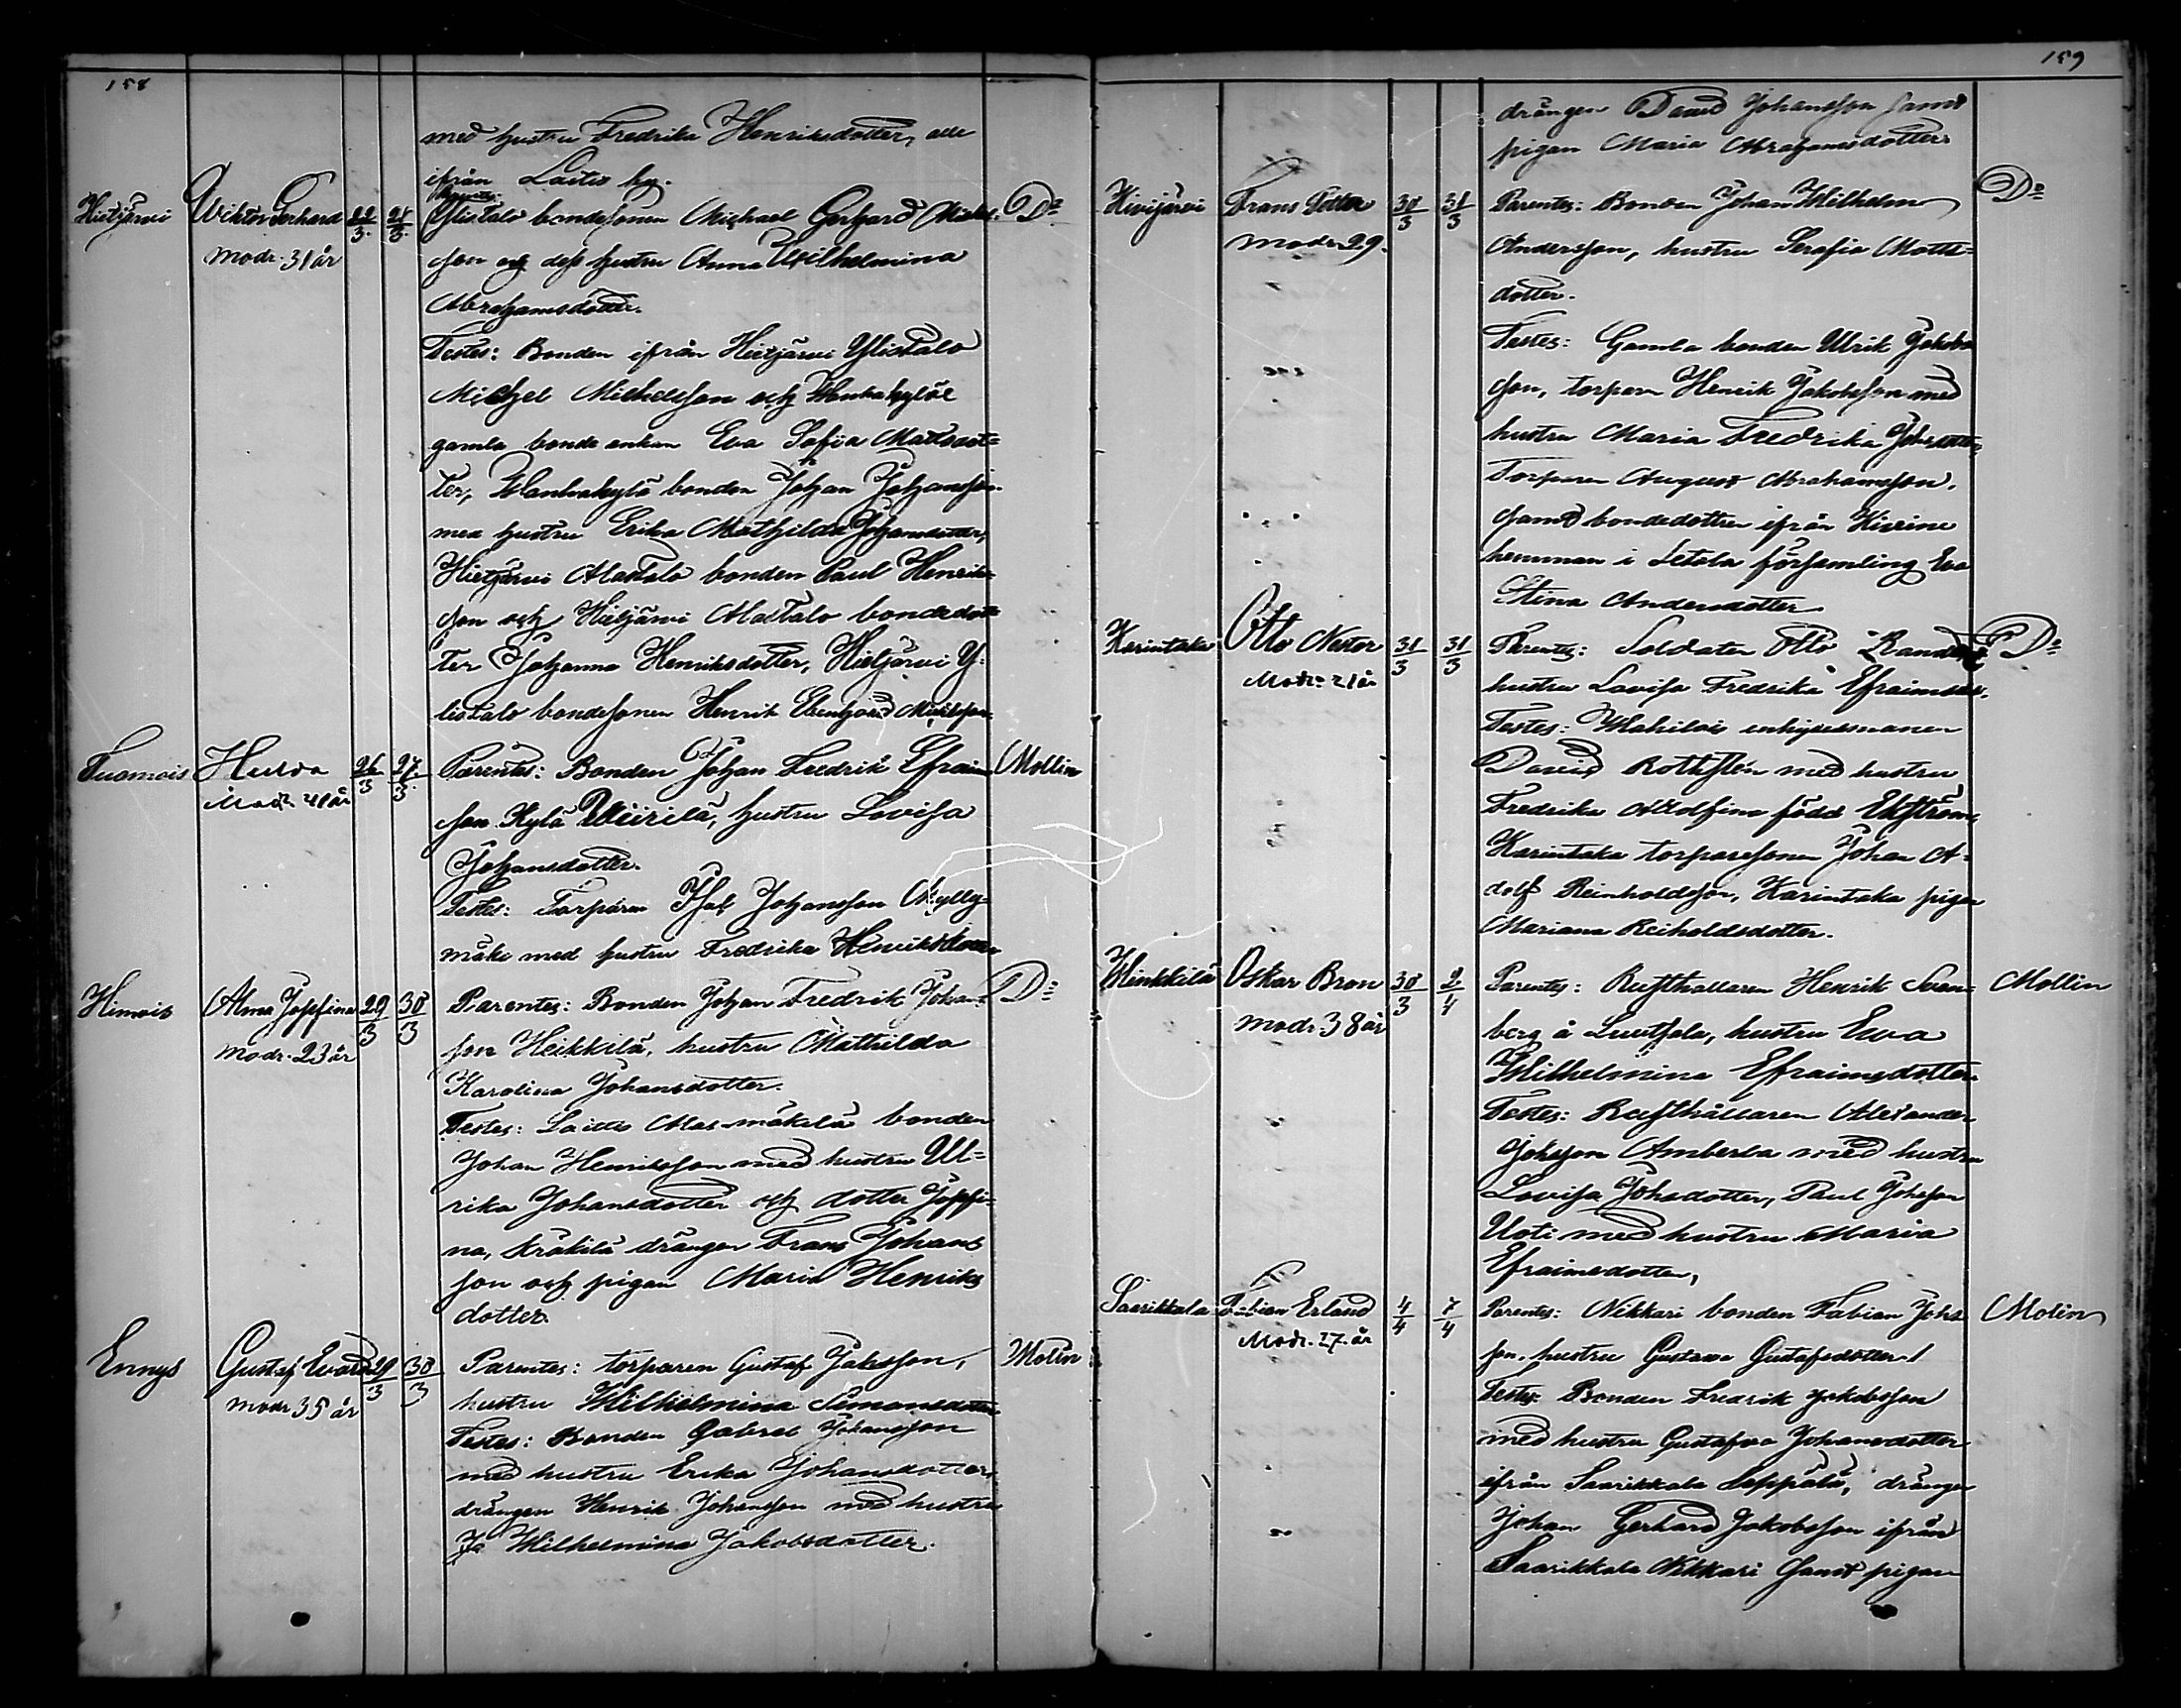 158
med hustru Fredrika Henriksdotter, alle
ifrån Laitis by.
Hietjärvi Wiktor Gerhard 22/3. 24/3. Ylistalo bondesonen Michael Gerhard Michels- Do
modr. 31 år son och dess hustru Anna Wilhelmina
Abrahamsdotter.
Testes: Bonden ifrån Hietjärvi Ylistalo
Michel Michelsson och
gamla bonde enkan Eva Sofia Matsdot=
ter, bonden Johan Johansson
med hustru Erika Mathilda Johansdotter,
Hietjärvi Alastalo bonden Paul Henriks-
son och Hietjärvi Alastalo bondedot
ter Johanna Henriksdotter, Hietjärvi Y-
listalo bondesonen Henrik Michelsson.
Tuomois Hulda 26/3 27/3. Parentes: Bonden Johan Fredrik Efraim Mollin
Modr. 41 år son Kylä hustru Lovisa
Johansdotter.
Testes: Torparen Isak Johansson Mylly=
mäki med hustru Fredrika Henriksdotter
Himois Alma Josefina 29/3 30/3 Parentes: Bonden Johan Fredrik Johan- Do
modr. 23 år son Heikkilä, hustru Mathilda
Karolina Johansdotter.
Testes: Laitis Alas-mäkelä bonden
Johan Henriksson med hustru Ul=
rika Johansdotter och dotter Josefi-
na, Kräkilä drängen Frans Johans
son och pigan Maria Henriks
dotter.
Ennys Gustaf Evald 29/3 30/3 Parentes: torparen Gustaf Jakosson, Molin
modr 35 år hustru Wilhelmina Simonsdotter
Testes: Bonden Gabriel Johansson
med hustru Erika Johansdotter,
drängen Henrik Johansson med hustru
Wilhelmina Jakobsdotter.
159
drängen David Johansson samt
pigan Maria Abrahamsdotter.
Kivijärvi Frans Petter 30/3 31/3 Parentes: Bonden Johan Wilhelm Do
modr. 29. Andersson, hustru Serafia Matts-
dotter.
Testes: Gamla bonden Ulrik Jakobs
son, torparn Henrik Jakobsson med
hustru Maria Fredrika Johsdotter,
Torparen August Abrahamsson,
samt bondedottren ifrån
hemman i Letala församling Eva
Stina Andersdotter
Karintaka Otto Nestor 31/3 31/3 Parentes: Soldaten Otto Do
Modr. 21 år hustru Lovisa Fredrika Efraimsdr.
Testes:
David Rothstén med hustru
Fredrika Adolfina född Ekström,
Karintaka torparesonen Johan A-
dolf Reinholdsson, Karintaka pigan
Mariana Reiholdsdotter.
Oskar Bron 30/3 2/4 Parentes: Rusthållaren Henrik Svan- Mollin
modr 38 år berg å hustru Ewa
Wilhelmina Efraimsdotter.
Testes: Rusthållaren Alexander
Johsson Amberla med hustru
Lovisa Johsdotter, Paul Johsson
Uoti med hustru Maria
Efraimsdotter,
Saarikkala Fabian Erland 4/4 7/4 Parentes: Nikkari bonden Fabian Johs Molin
Modr. 27. år son, hustru Gustava Gustafsdotter.
Testes. Bonden Fredrik Jakobsson
med hustru Gustafva Johansdotter
ifrån Saarikkala Seppälä, drängen
Johan Gerhard Jakobsson ifrån
Saarikkala Nikkari samt pigan